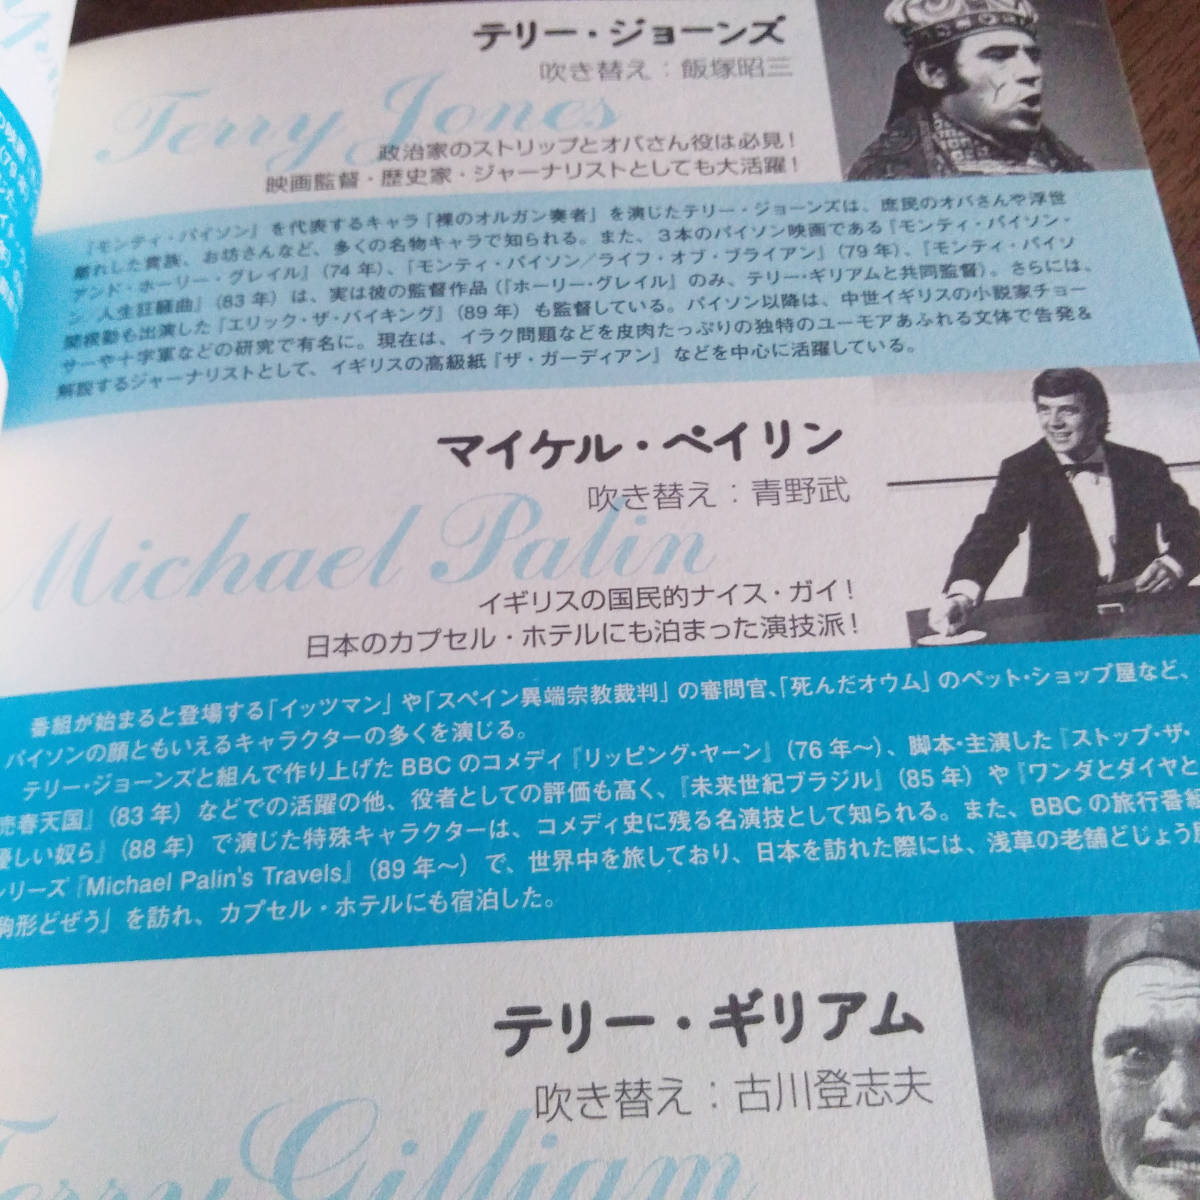 テリー・ジョーンズ
吹き替え：飯塚昭三
Terry Jones
政治家のストリップとオバさん役は必見！
映画監督・歴史家・ジャーナリストとしても大活躍！
『モンティ・パイソン』を代表するキャラ「裸のオルガン奏者」を演じたテリー・ジョーンズは、庶民のオバさんや浮世
離れした貴族、お坊さんなど、多くの名物キャラで知られる。また、３本のパイソン映画である『モンティ・パイソン・
アンド・ホーリー・グレイル』（74年）、『モンティ・パイソン／ライフ・オブ・ブライアン』（79年）、『モンティ・パイソ
ン 人生狂騒曲』（83年）は、実は彼の監督作品（『ホーリー・グレイル』のみ、テリー・ギリアムと共同監督）。さらには、
関根勤も出演した『エリック・ザ・バイキング』（89年）も監督している。パイソン以降は、中世イギリスの小説家チョー
サーや十字軍などの研究で有名に。現在は、イラク問題などを皮肉たっぷりの独特のユーモアあふれる文体で告発＆
解説するジャーナリストとして、イギリスの高級紙『ザ・ガーディアン』などを中心に活躍している。
マイケル・ペイリン
吹き替え：青野武
Michael Palin
イギリスの国民的ナイス・ガイ！
日本のカプセル・ホテルにも泊まった演技派！
番組が始まると登場する「イッツマン」や「スペイン異端宗教裁判」の審問官、「死んだオウム」のペット・ショップ屋など、
パイソンの顔ともいえるキャラクターの多くを演じる。
テリー・ジョーンズと組んで作り上げたBBCのコメディ『リッピング・ヤーン』（76年〜）、脚本・主演した『ストップ・ザ・
売春天国』（83年）などでの活躍の他、役者としての評価も高く、『未来世紀ブラジル』（85年）や『ワンダとダイヤと
優しい奴ら』（88年）で演じた特殊キャラクターは、コメディ史に残る名演技として知られる。また、BBCの旅行番組
シリーズ『Michael Palin's Travels』（89年〜）で、世界中を旅しており、日本を訪れた際には、浅草の老舗どじょう
駒形どぜう」を訪れ、カプセル・ホテルにも宿泊した。
テリー・ギリアム
吹き替え：古川登志夫
Terry Gilliam